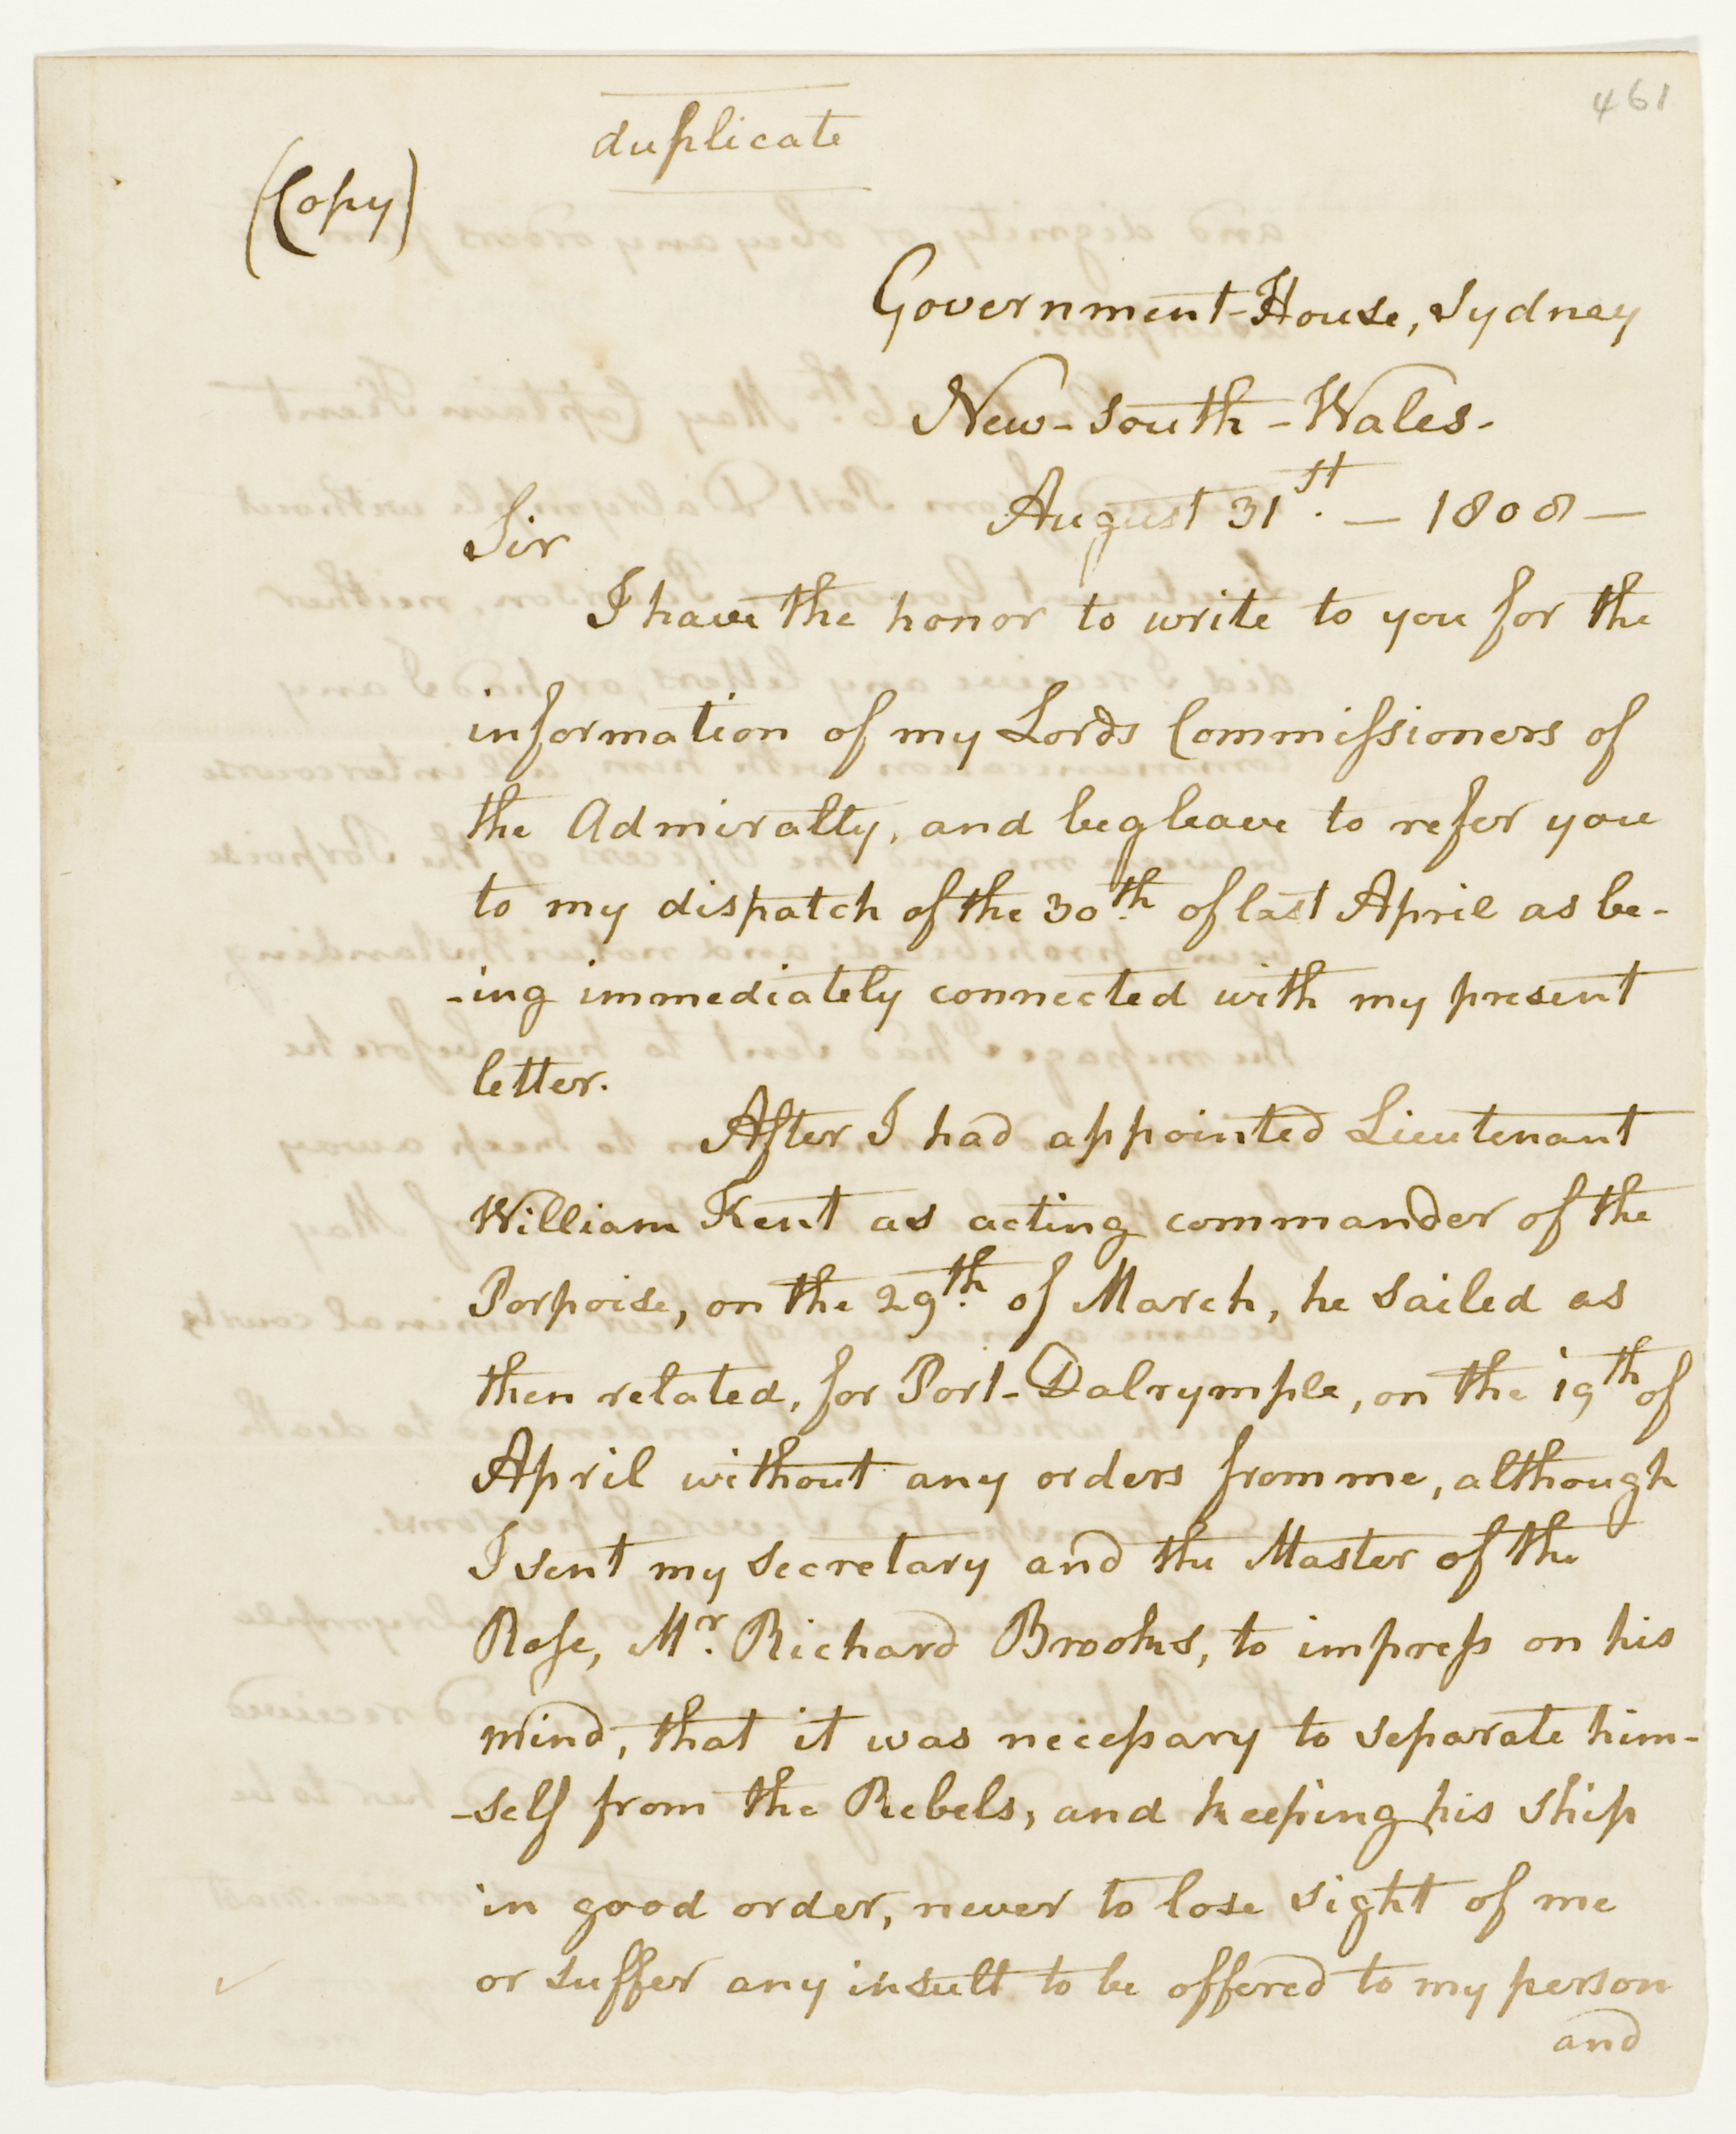 461
duplicate
(Copy)
Government-House, Sydney
New-South-Wales-
August 31st. — 1808 —
Sir
I have the honor to write to you for the
information of my Lords Commiſsioners of
the Admiralty, and beg leave to refer you
to my dispatch of the 30th. of last April as be-
-ing immediately connected with my present
letter.
After I had appointed Lieutenant
William Kent as acting commander of the
Porpoise, on the 29th. of March, he sailed as
then related, for Port-Dalrymple, on the 19th of
April without any orders from me, although
I sent my secretary and the Master of the
Rose, Mr. Richard Brooks, to impreſs on his
mind, that it was neceſsary to separate him-
-self from the Rebels, and keeping his ship
in good order, never to lose sight of me
or suffer any insult to be offered to my person
and